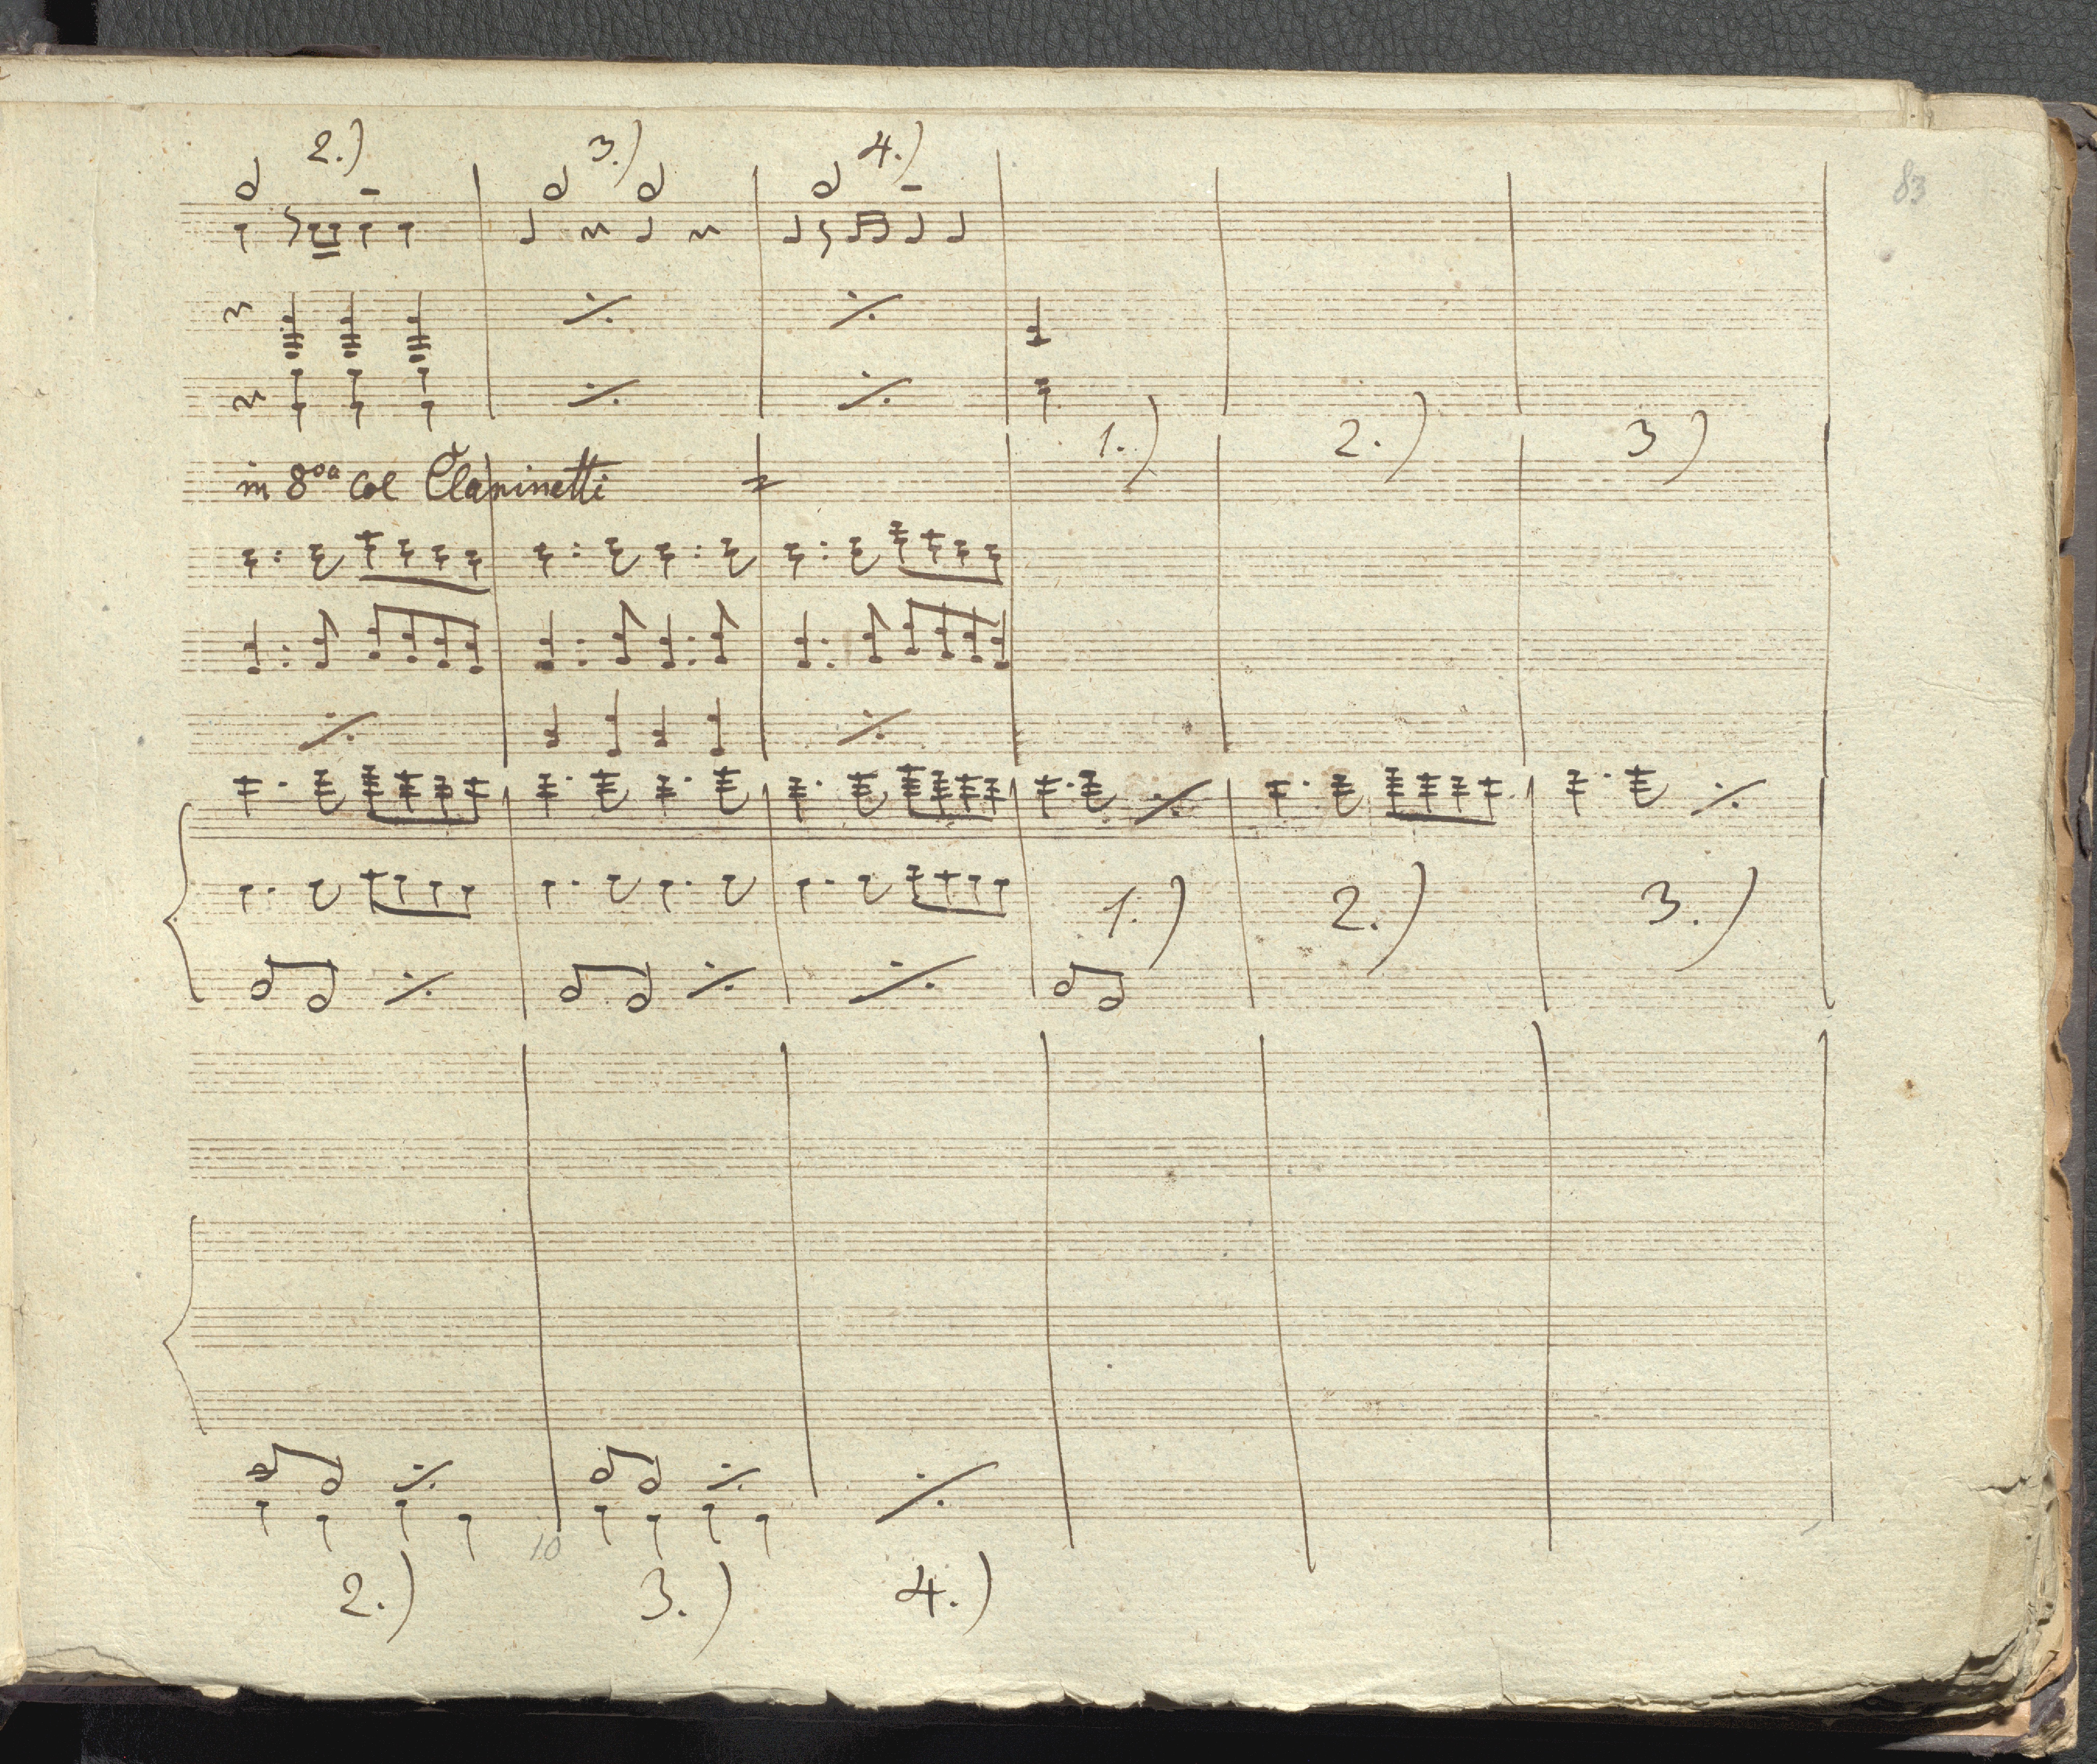 2.) 3.) 4.)
83
1.) 2.) 3)
in 8va col Clarinetti
1.) 2.) 3.)
10
2.) 3.) 4.)